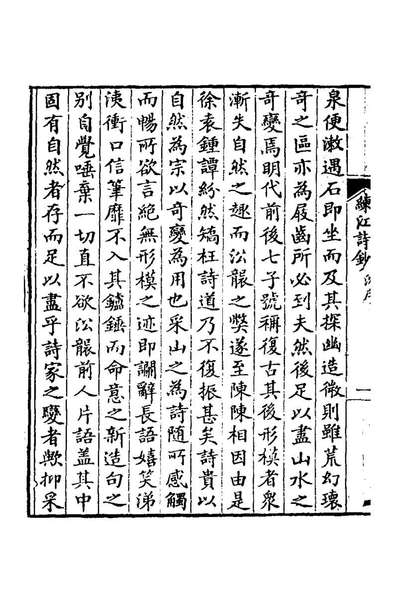 泉便漱遇石即坐而及其探幽造微則雖荒幻瓌
奇之區亦為屐齒所必到夫然後足以盡山水之
奇變焉明代前後七子號稱復古其後形模者衆
漸失自然之趣而沿襲之獘遂至陳陳相因由是
徐袁鍾譚紛然矯枉詩道乃不復振甚矣詩貴以
自然為宗以奇變為用也采山之為詩隨所感觸
而暢所欲言絕無形模之迹即讕辭長語嬉笑涕
洟衝口信筆靡不入其鑪錘而命意之新造句之
别自覺唾棄一切直不欲沿襲前人片語盖其中
固有自然者存而足以盡乎詩家之變者歟抑采
練江詩鈔
序
一